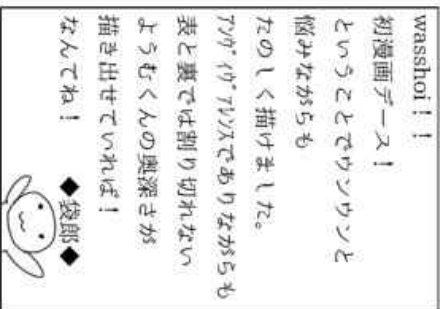 wasshoi！！
初漫画デース！
ということでウンウンと
悩みながらも
たのしく描けました。
アンヴィヴァレンスでありながらも
表と裏では割り切れない
ようむくんの奥深さが
描き出せていれば！
なんてね！
◆袋郎◆